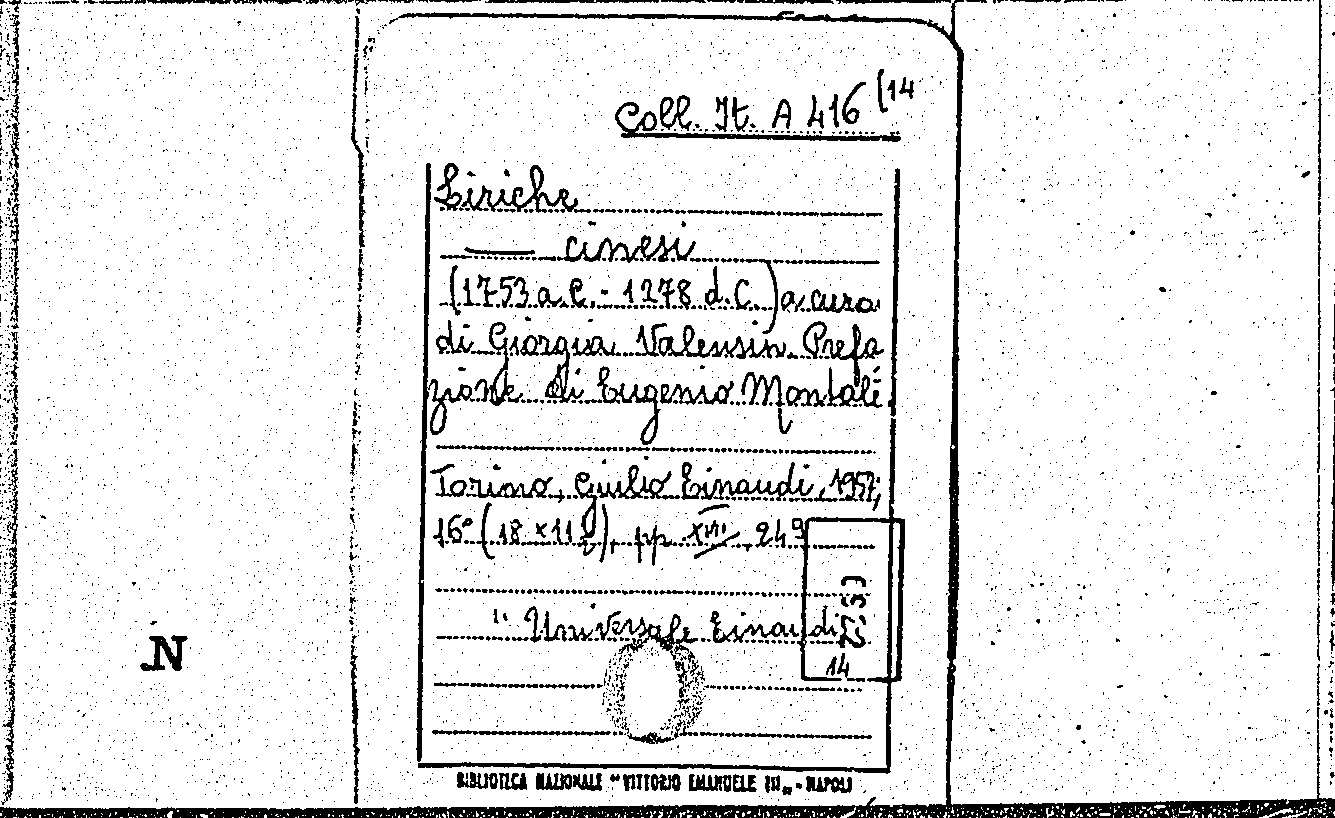 Coll. It. A 416 (14
Liriche
—— cinesi
(1753 a C. - 1278 d. C.) a cura
di Giorgia Valensin. Prefa
zione di Eugenio Montale.
Torino, Giulio Einaudi, 1952,
16° (18 × 11 ), pp XVIII, 249
Universale Einaudi
14
N
BIBLIOTECA NAZIONALE "VITTORIO EMANUELE III„ - NAPOLI